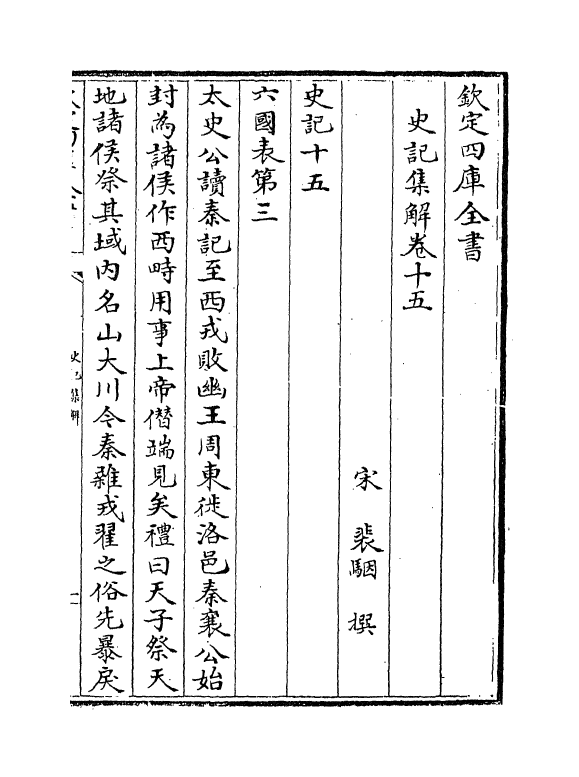 欽定四庫全書
史記集解卷十五
宋 裴駰 撰
史記十五
六國表第三
太史公讀秦記至西戎敗幽王周東徙洛邑秦襄公始
封為諸侯作西畤用事上帝僭端見矣禮曰天子祭天
地諸侯祭其域内名山大川今秦雜戎翟之俗先暴戾
史記集解